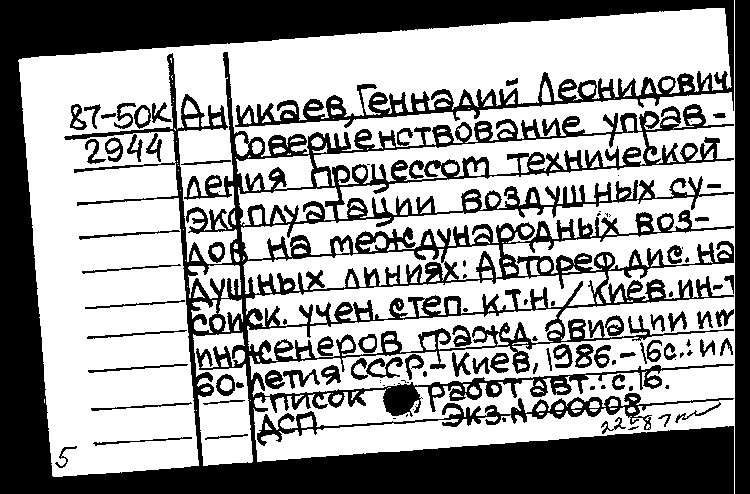 87-50К Аникаев, Геннадий Леонидович
2944 Совершенствование управ-
ления процессом технической
эксплуатации воздушных су-
дов на международных воз-
душных линиях: Автореф. дис. на
соиск. учен. степ. к.т.н. / Киев. ин-т
инженеров гражд. авиации им
60-летия СССР. - Киев, 1986. - 16с.: ил
список работ авт.: с. 16.
ДСП. Экз. N 000008.
5